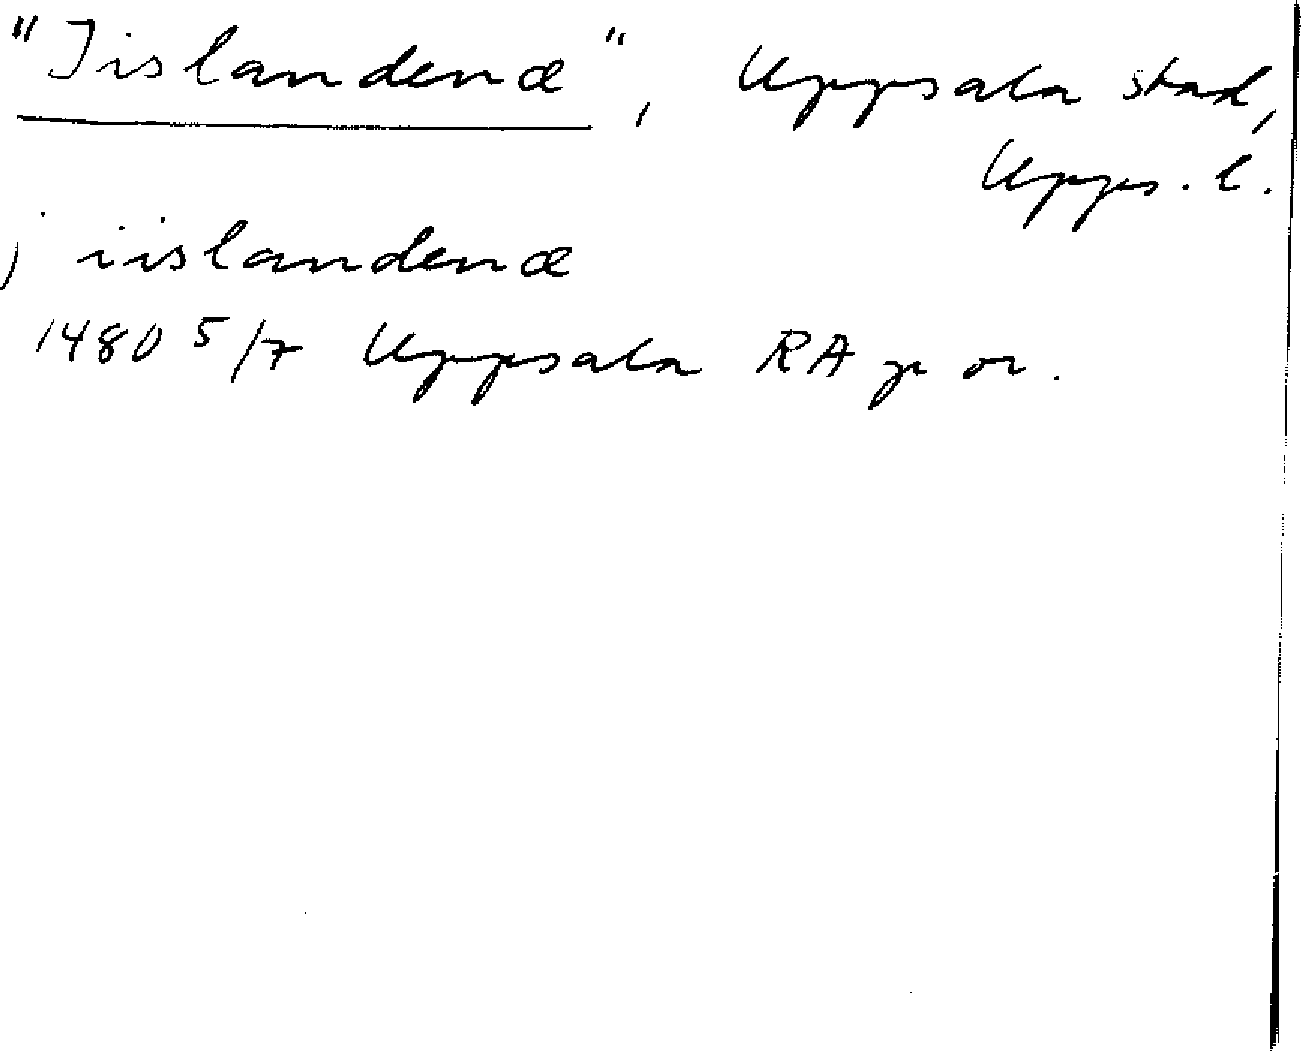 "Iislandenæ", Uppsala stad,
Upps. l.
j iislandenæ
1480 5/7 Uppsala RA p or.